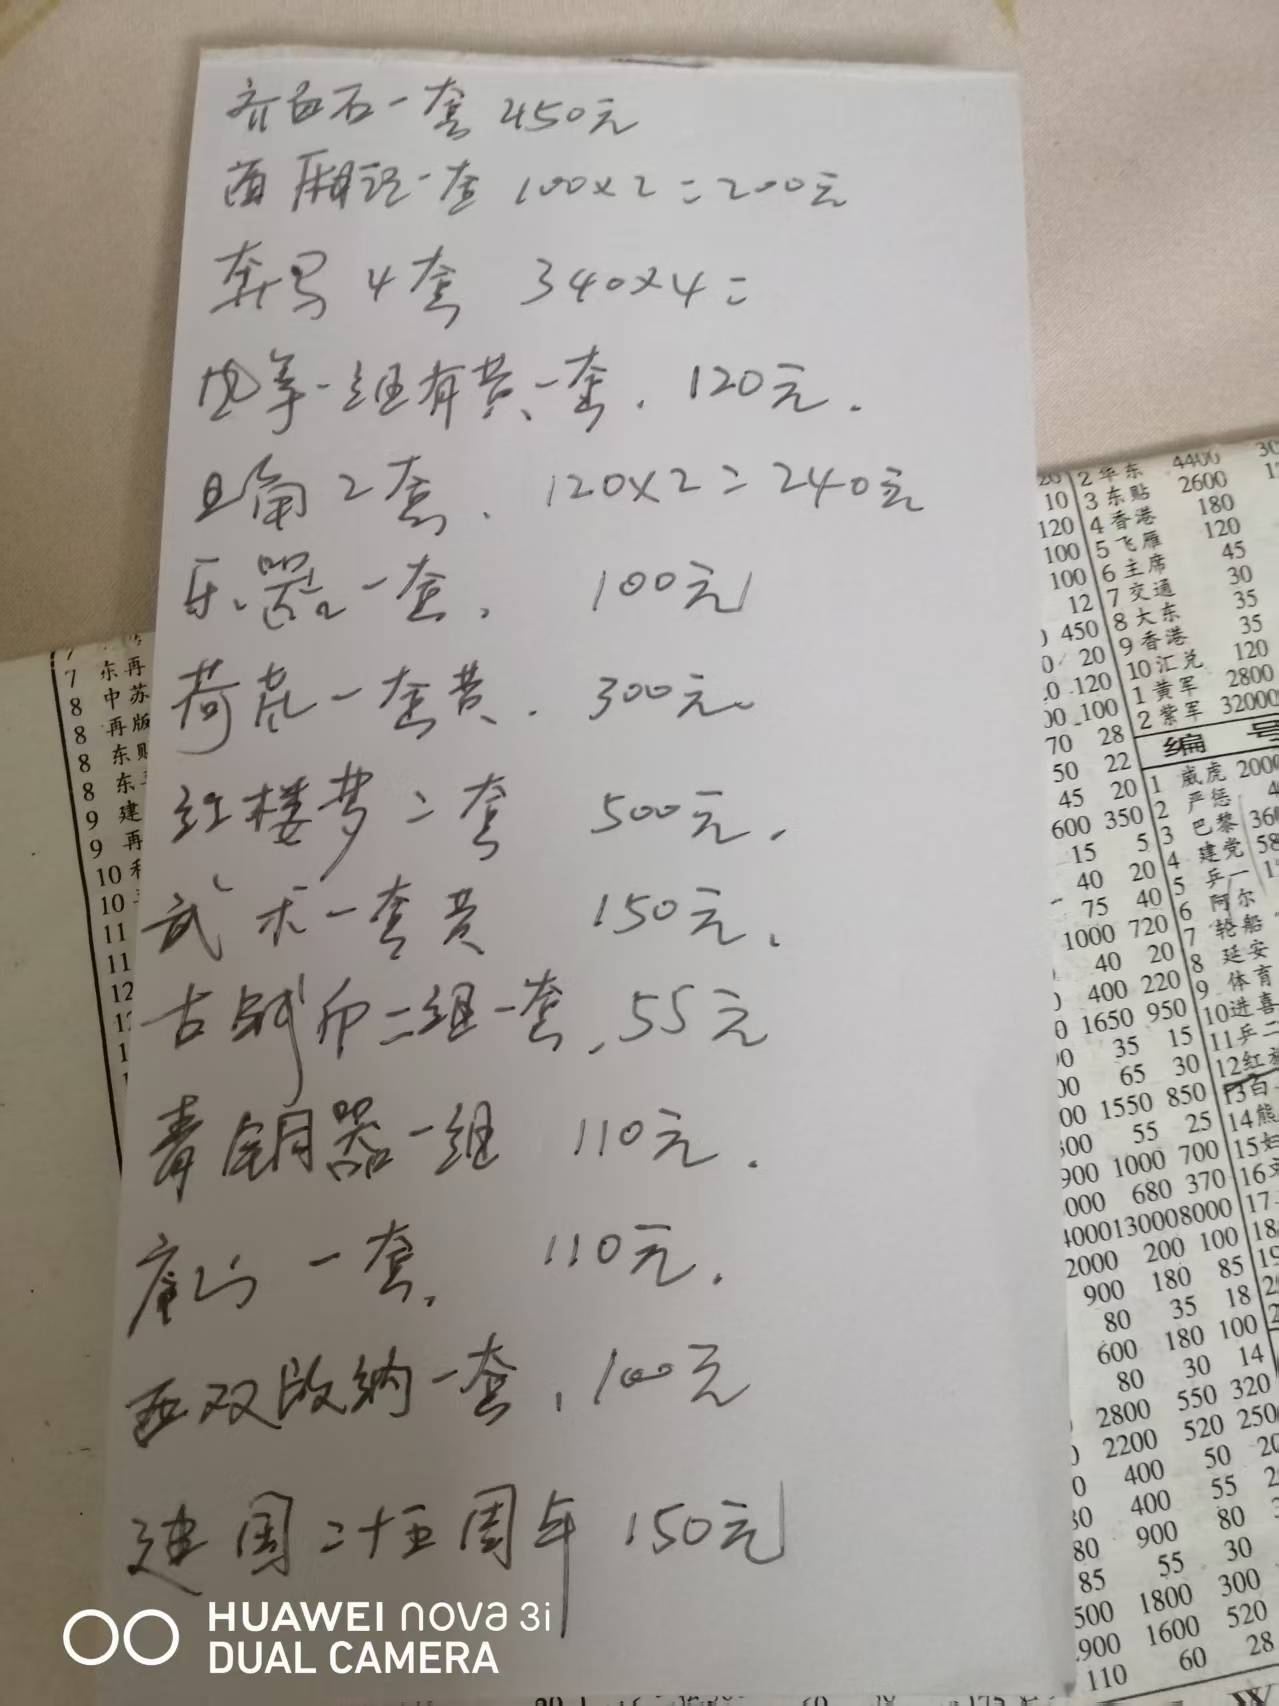 齐白石一套 450元
西厢记一套 100×2=200元
奔马 4套 340×4=
风筝一组有黄一套. 120元.
旦角2套. 120×2=240元
乐器一套. 100元
荷花一套黄. 300元.
红楼梦二套 500元.
武术一套黄 150元.
古钱币二组一套. 55元
青铜器一组 110元.
庐山 一套. 110元.
西双版纳一套. 100元
建国二十五周年 150元
HUAWEI nova 3i
DUAL CAMERA
2 华东 4400
10 3 东贴 2600
120 4 香港 180
100 5 飞雁 120
100 6 主席 45
12 7 交通 30
450 8 大东 35
20 9 香港 35
120 10 汇兑 120
100 1 黄军 2800
70 28 2 紫军 32000
50 22 编 号
45 20 1 威虎 2000
600 350 2 严惩
15 5 3 巴黎 360
40 20 4 建党 58
75 40 5 乒一
1000 720 6 阿尔
40 20 7 轮船
400 220 8 延安
1650 950 9 体育
35 15 10 进喜
65 30 11 乒二
1550 850 12 红
55 25 13 百
1000 700 14 熊
680 370 15 妇
13000 8000 16
2000 200 100 17
900 180 85 18
80 35 18
600 180 100
80 30 14
2800 550 320
2200 520 250
400 50
400 55
900 80
85 55 30
500 1800 300
900 1600 520
110 60 28
7 东 再
8 中 苏
8 再 版
8 东
8 东
9 建
9 再
10
10
11
11
12